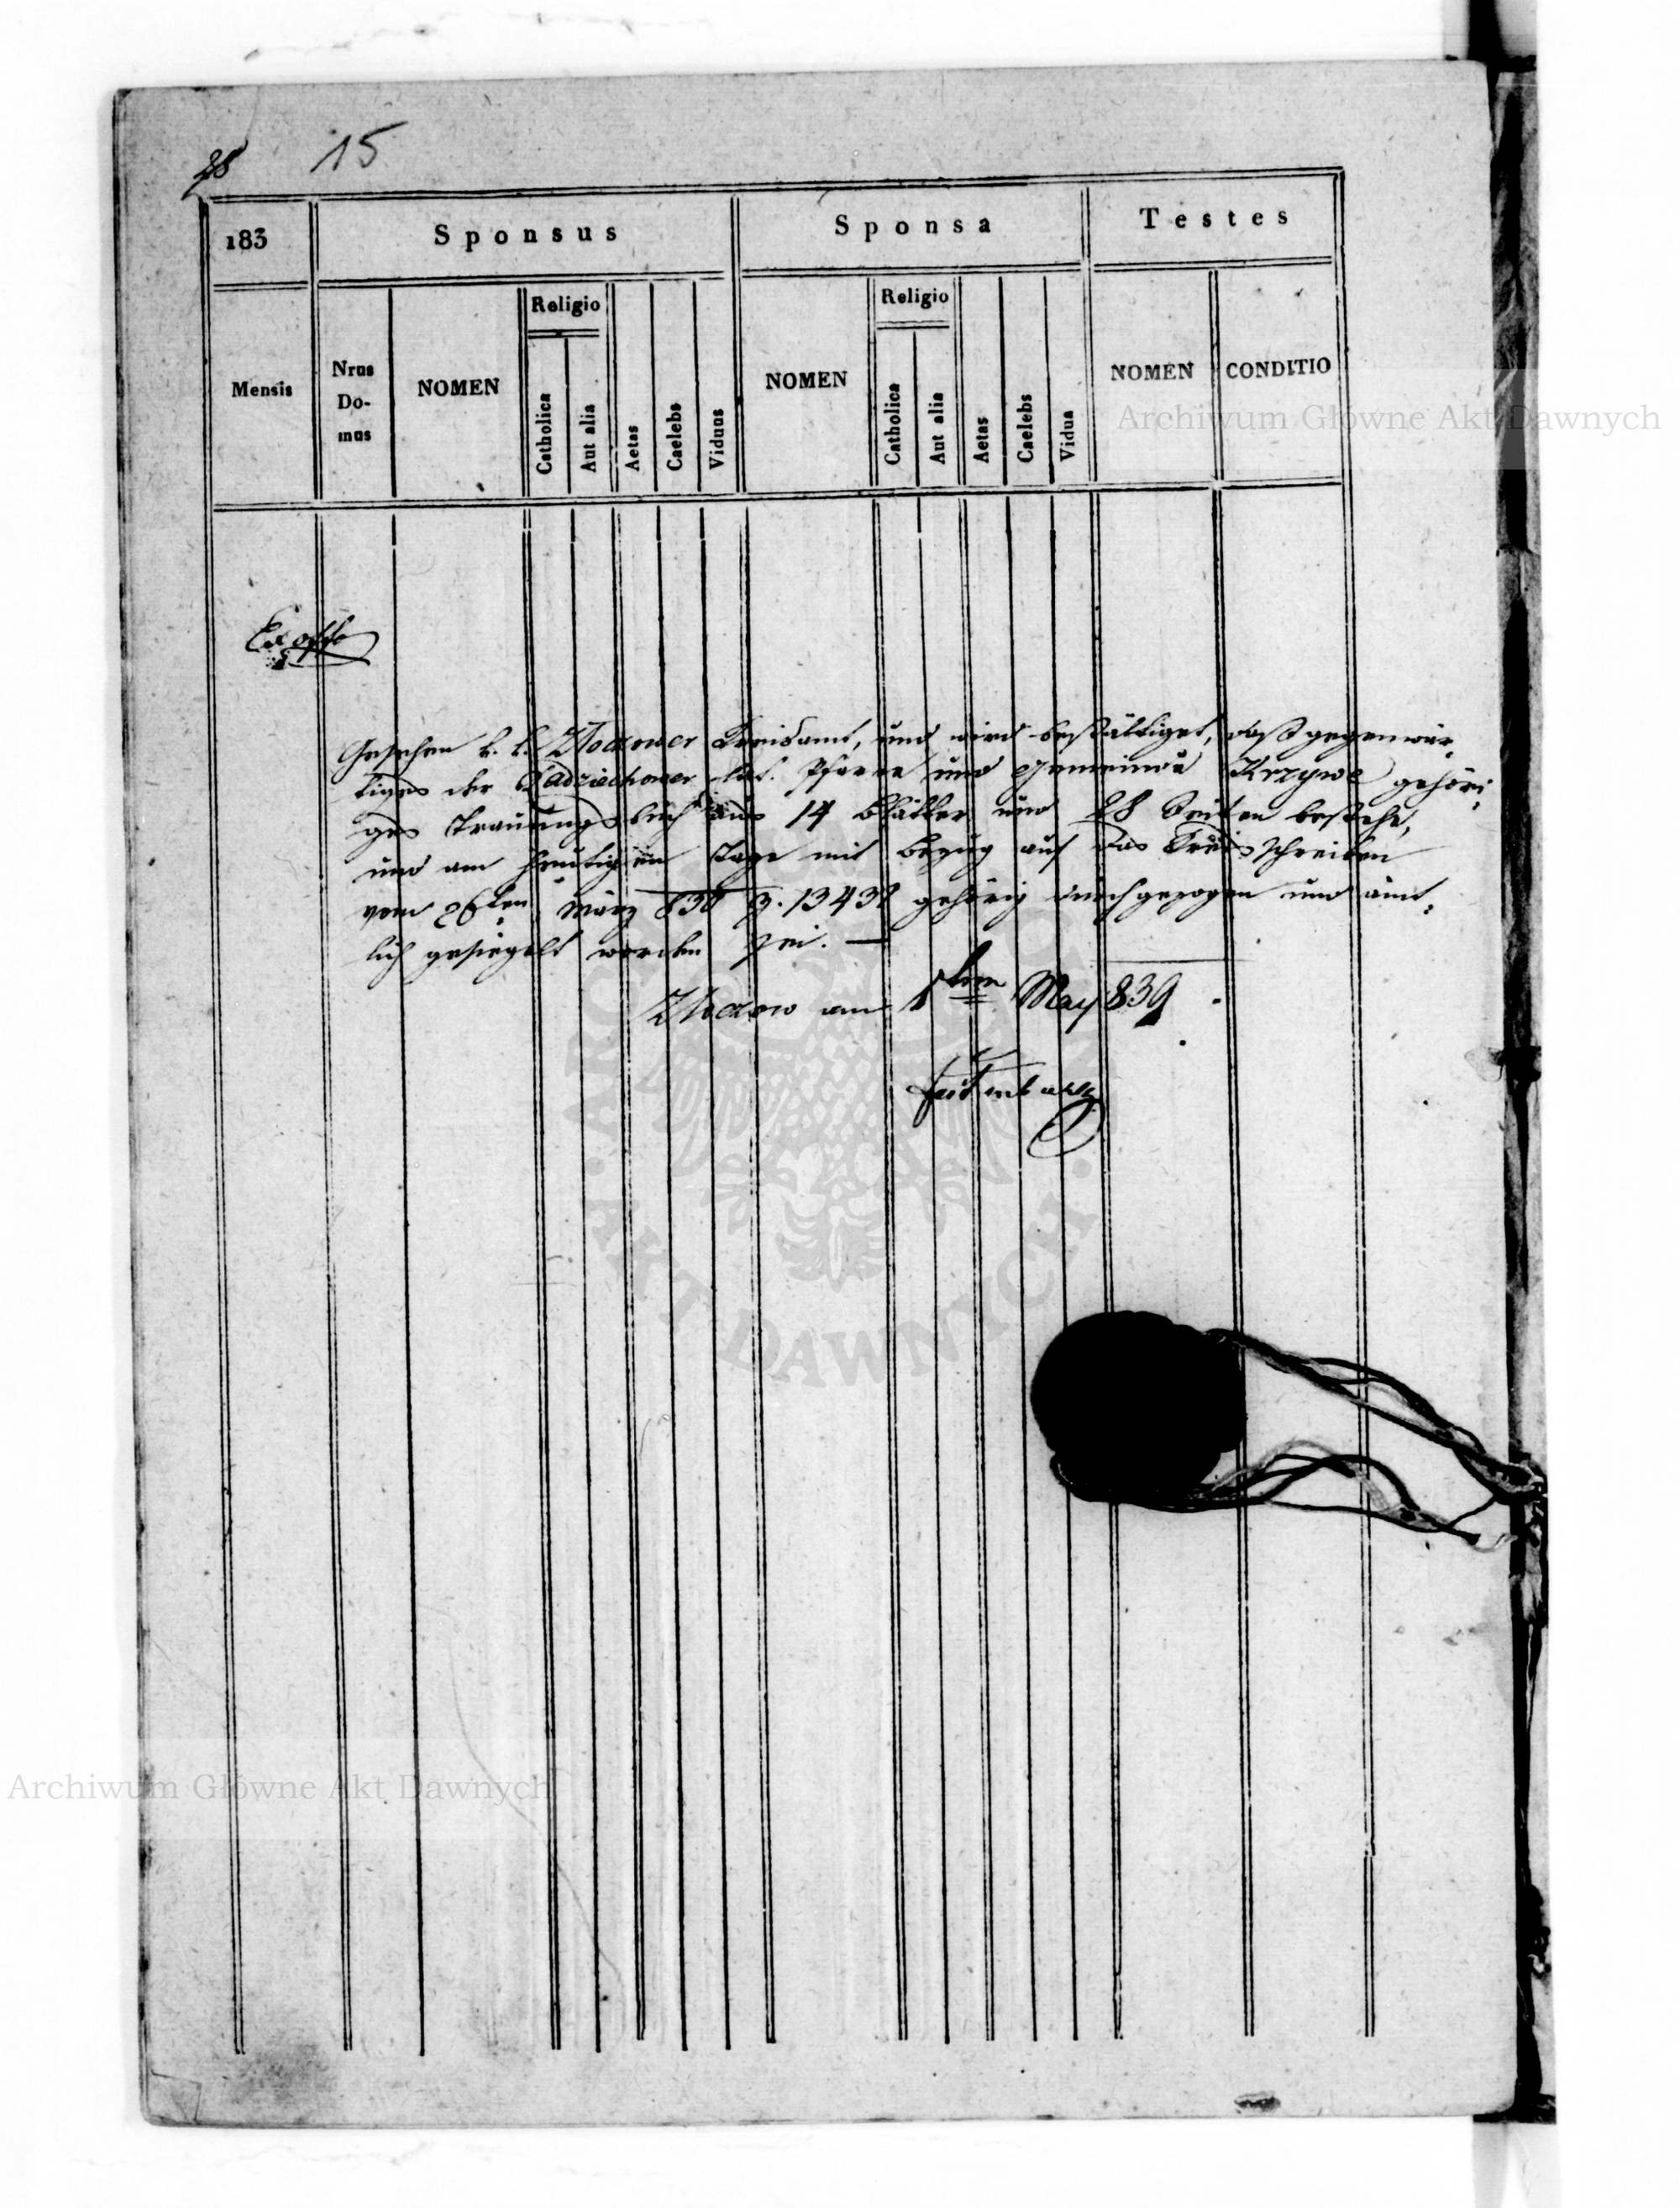 28 15
183 Sponsus Sponsa Testes
Mensis Nrus Domus NOMEN Religio Catholica Aut alia Aetas Caelebs Viduus NOMEN Religio Catholica Aut alia Aetas Caelebs Vidua NOMEN CONDITIO
Archiwum Główne Akt Dawnych
Ex offo
Gesehen k. k. Zloczower Kreisamt, und wird bestättiget, daß gegenwär-
tiges der Radziechower lat. Pfarre und Gemeinde Krzywe gehöri-
ges Trauungsbuch aus 14 Blätter und 28 Seiten bestehe,
und am heutigen Tage mit Bezug auf das Kreisschreiben
vom 26ten März 838 Z. 13438 gehörig durchgezogen und ämt-
lich gesiegelt worden sei. —
Zloczow am 1ten May 839.
AKT DAWNYCH
Archiwum Główne Akt Dawnych